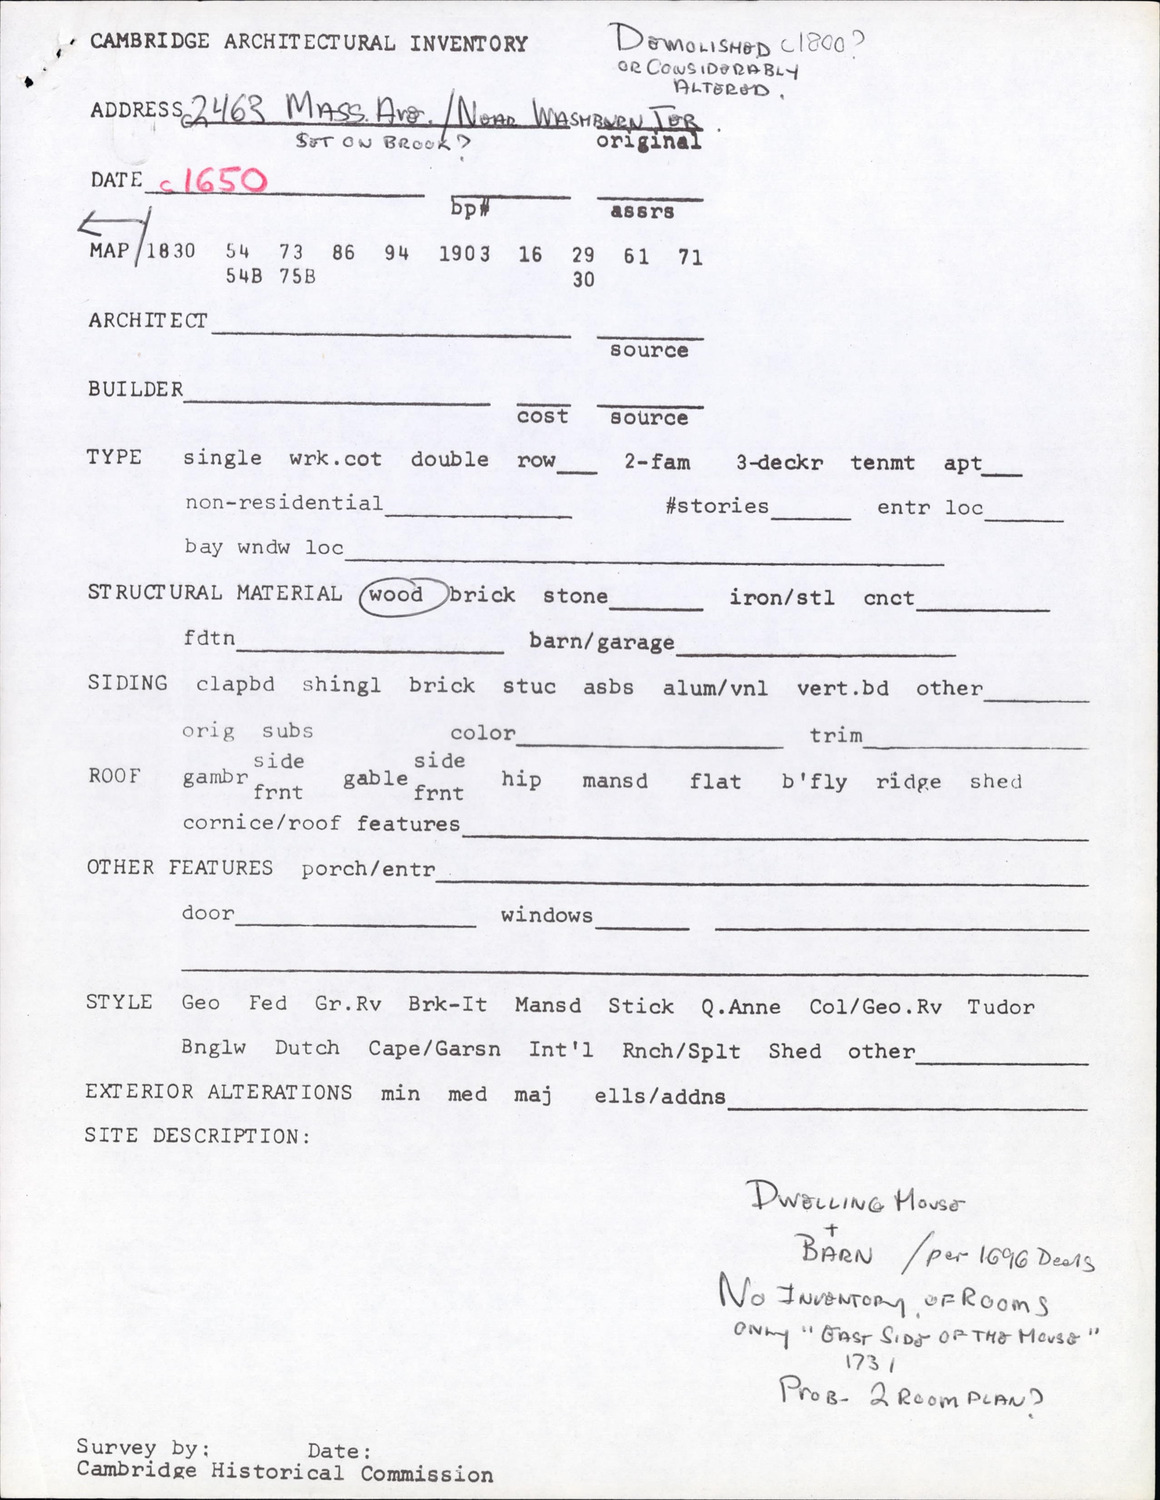 CAMBRIDGE ARCHITECTURAL INVENTORY
DEMOLISHED c1800?
OR CONSIDERABLY
ALTERED.
ADDRESS 2463 MASS. AVE. / NEAR WASHBURN TER.
SET ON BROOK? original
DATE c1650
bp# assrs
MAP 1830 54 73 86 94 1903 16 29 61 71
54B 75B 30
ARCHITECT
source
BUILDER
cost source
TYPE single wrk.cot double row 2-fam 3-deckr tenmt apt
non-residential #stories entr loc
bay wndw loc
STRUCTURAL MATERIAL wood brick stone iron/stl cnct
fdtn barn/garage
SIDING clapbd shingl brick stuc asbs alum/vnl vert.bd other
orig subs color trim
side side
ROOF gambr gable hip mansd flat b'fly ridge shed
frnt frnt
cornice/roof features
OTHER FEATURES porch/entr
door windows
STYLE Geo Fed Gr.Rv Brk-It Mansd Stick Q.Anne Col/Geo.Rv Tudor
Bnglw Dutch Cape/Garsn Int'l Rnch/Splt Shed other
EXTERIOR ALTERATIONS min med maj ells/addns
SITE DESCRIPTION:
DWELLING HOUSE
+
BARN / per 1696 Deeds
NO INVENTORY OF ROOMS
ONLY "EAST SIDE OF THE HOUSE"
1731
PROB- 2 ROOM PLAN?
Survey by: Date:
Cambridge Historical Commission